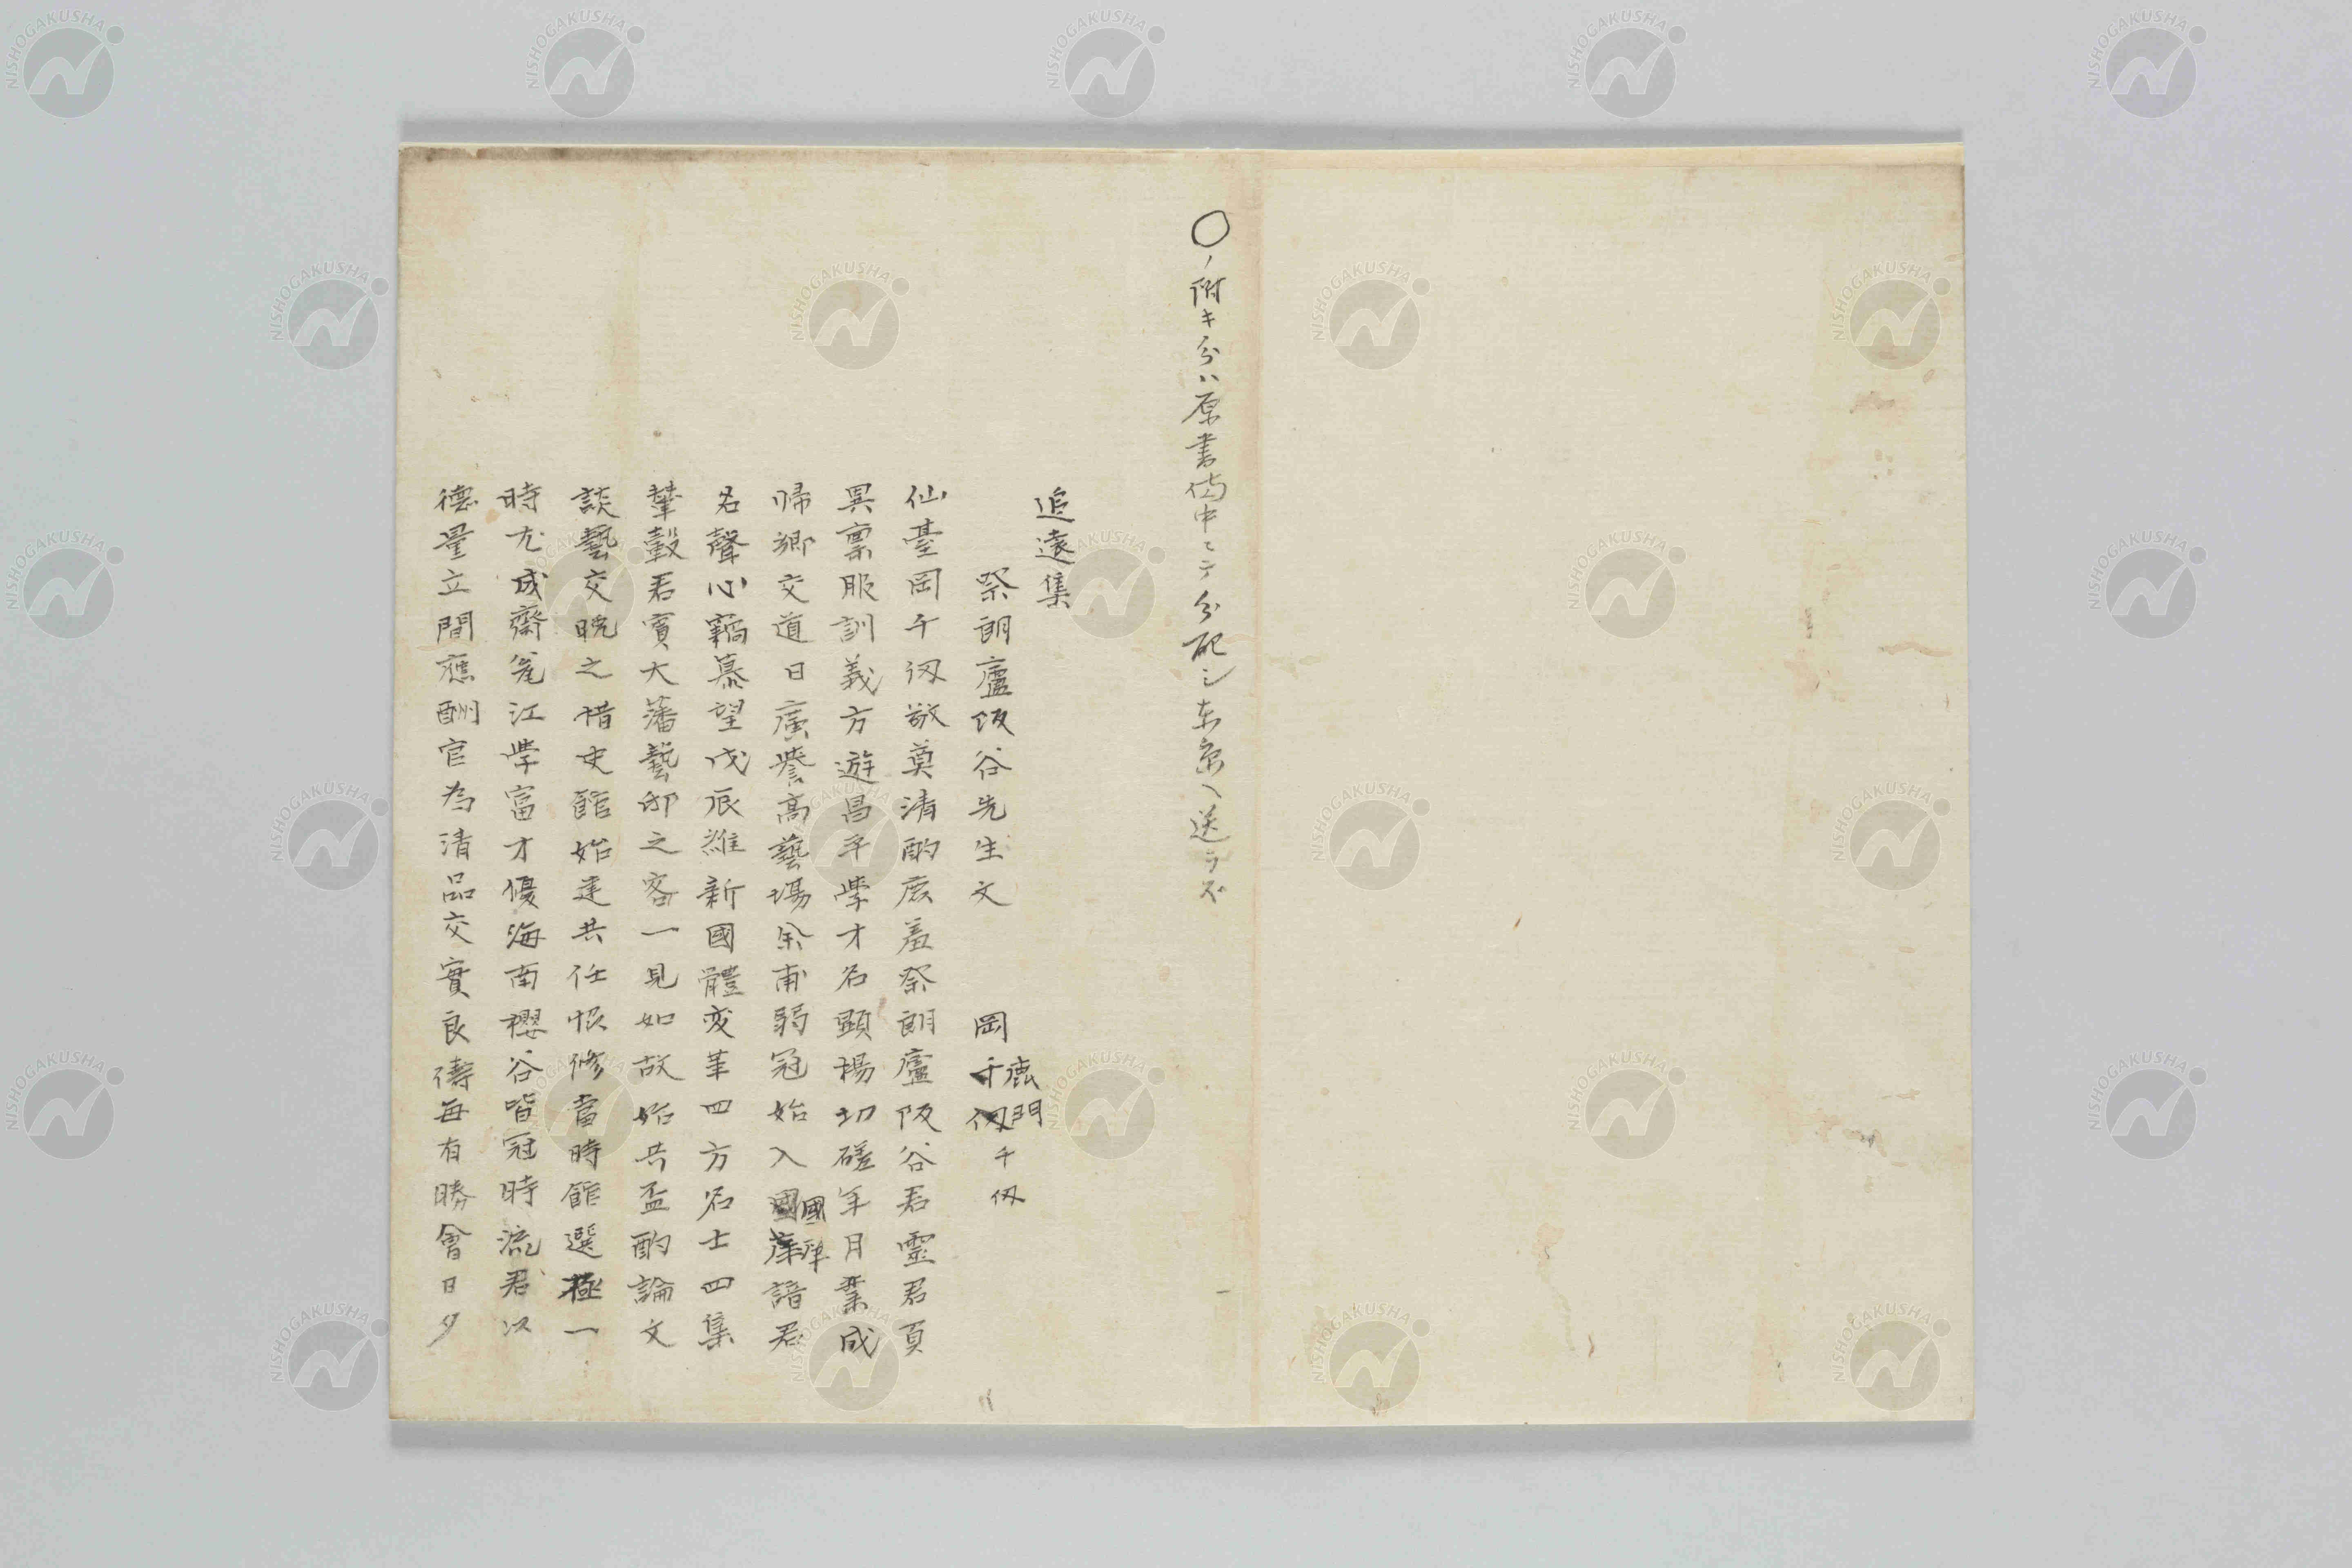 〇ノ附キ分ハ原書備中ニテ分配シ東京ヘ送ラズ
追遠集
祭朗廬阪谷先生文 岡千仭鹿門千仭
仙臺岡千仭敬奠清酌庶羞祭朗廬阪谷君靈君負
異稟服訓義方遊昌平學才名顕楊切磋年月業成
帰鄉交道日廣譽高藝場余甫弱冠始入國庠國庠諳君
名聲心竊慕望戊辰維新國體変革四方名士四集
輦轂君賓大藩藝邸之客一見如故始共盃酌論文
談藝交晩之惜史館始建共任恨修當時館選極一
時尤成齋毫江學富才優海南櫻谷皆冠時流君以
德量立間應酬官為清品交實良儔每有勝會日夕
NISHOGAKUSHA